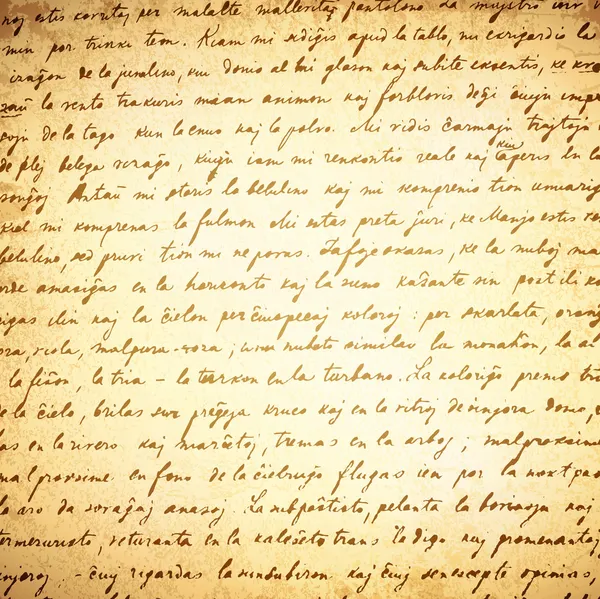 estis kovritaj per malalte pantalono la
min por trinki teon. Kiam mi sidiĝis apud la tablo, mi ekrigardis la
vizaĝon de la junulino, kiu donis al mi glason kaj subite eksentis, ke
la vento trakuris mian animon kaj forblovis ĉiujn
de la tago kun la enuo kaj la polvo. Mi vidis ĉarmajn trajtojn
de plej belega vizaĝo, kiujn iam mi renkontis reale kaj kiu aperis en la
sonĝoj Antaŭ mi staris la belulino kaj mi komprenis tion unuarig
kiel mi komprenas la fulmon Mi estas preta ĵuri, ke estis
belulino, sed pruvi tion mi ne povas. Iafoje okazas, ke la nuboj
amasiĝas en la horizonto kaj la suno kaŝante sin post ili
ilin kaj la ĉielon per ĉiuspecaj koloroj: per skarlata,
viola, malpura-roza; unu nubeto similas la monaĥon, la
la fiŝon, la tria - la turkon en la turbano. La koloriĝo premis
de la ĉielo, brilas sur preĝeja kruco kaj en la vitroj de sinjora domo,
en la rivero kaj marĉetoj, tremas en la arboj; malproksime
malproksime en fono de la ĉielruĝo flugas ien por la noktpaŭ
la aro da sovaĝaj anasoj. La subpaŝtisto, pelanta la bovinojn kaj
termezuristo, veturanta en la kaleŝeto trans la digo kaj promenantaj
sinjoroj - ĉiuj rigardas la sunsubiron kaj ĉiuj senescepte opinias,